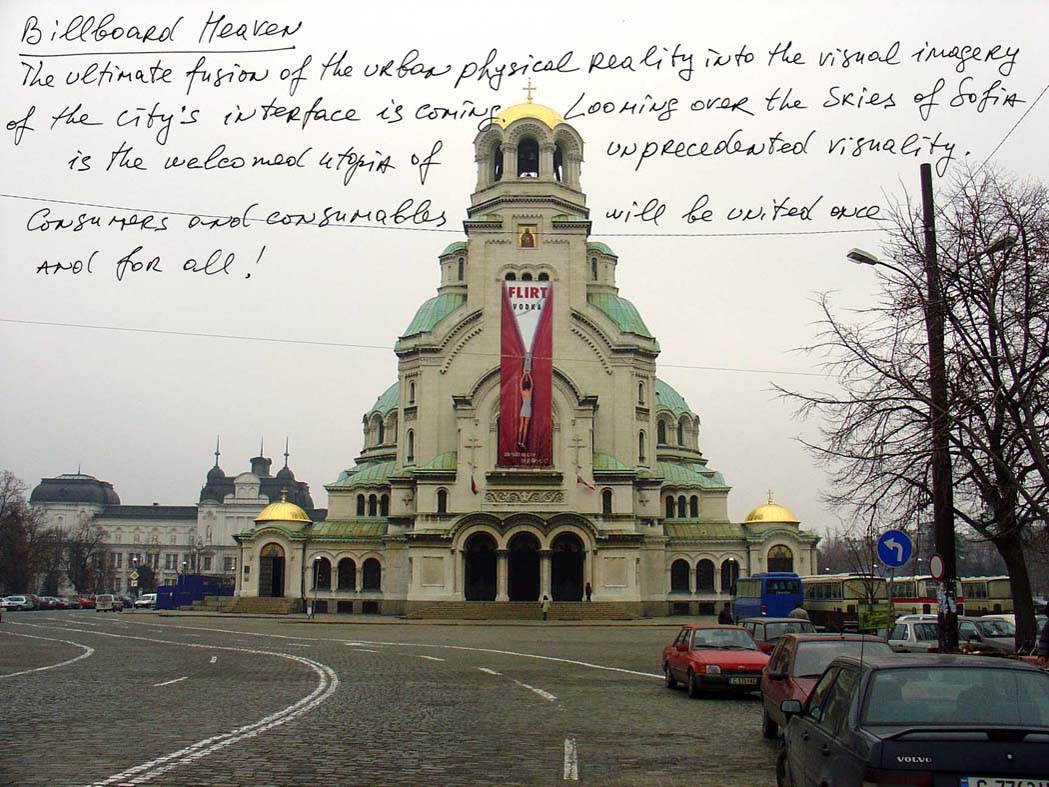 Billboard Heaven
The ultimate fusion of the urban physical reality into the visual imagery
of the city's interface is coming. Looming over the skies of Sofia
is the welcomed utopia of unprecedented visuality.
Consumers and consumables will be united once
and for all!
FLIRT
VODKA
VOLVO